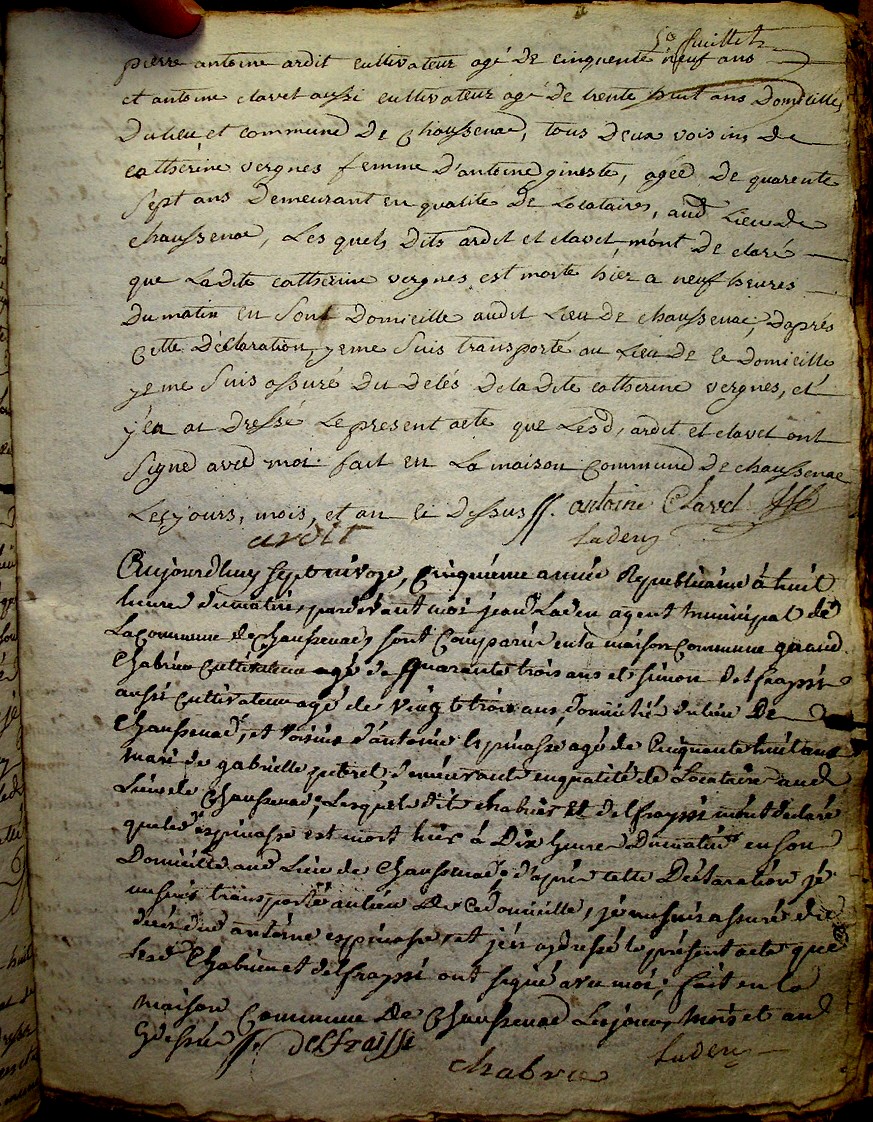 5e fuillet
pierre antoine ardit cultivateur agé de cinquente neuf ans
et antoine clavel aussi cultivateur agé de trente huit ans Domicilliés
du lieu et commune de chaussenac, tous deux voisins de
catherine vergnes femme d'antoine gineste, agée de quarente
sept ans demeurant en qualité de Locataires, aud Lieu de
chaussenac, Les quels dits ardit et clavel m'ont de claré
que Ladite catherine vergnes est morte hier a neuf heures
du matin en Son Domicille audit Lieu de chaussenac, daprés
cette déclaration, je me suis transporté au Lieu de ce domicille
je me suis assuré du delés de la dite catherine vergnes, et
j'en ai dressé Le present acte que Lesd, ardit et clavel ont
signé avec moi. fait en La maison commune de chaussenac
Les jours, mois, et an ci dessus antoine Clavel
ardit Laden
Aujourdhuy sept nivoze, cinquieme année Republicaine à huit
heures du matin, pardevant moi jean Laden agent municipal de
La commune de chaussenac, sont comparus en la maison commune
chabrier cultivateur agé de quarente trois ans et simon delfraissi
aussi cultivateur agé de vingt trois ans, domiciliés du lieu De
chaussenac, et voisins d'antoine lespinasse agé de cinquente huit ans
mari de gabrielle demeurant en qualité de Locataire aud
Lieu de chaussenac, Lesquels dit chabrier et delfraissi m'ont déclaré
que led espinasse est mort hier à Dix heures Du matin en son
Domicille aud Lieu de chaussenac, d'après cette Déclaration je
me suis transporté au lieu De ce domicille, je me suis assuré du
décés dud antoine espinasse, et j'en ai dressé le présent acte que
Lesd chabrier et delfraissi ont signé avec moi, fait en la
maison commune de chaussenac Les jour, mois et an
cydessus delfraissi
chabrie Laden